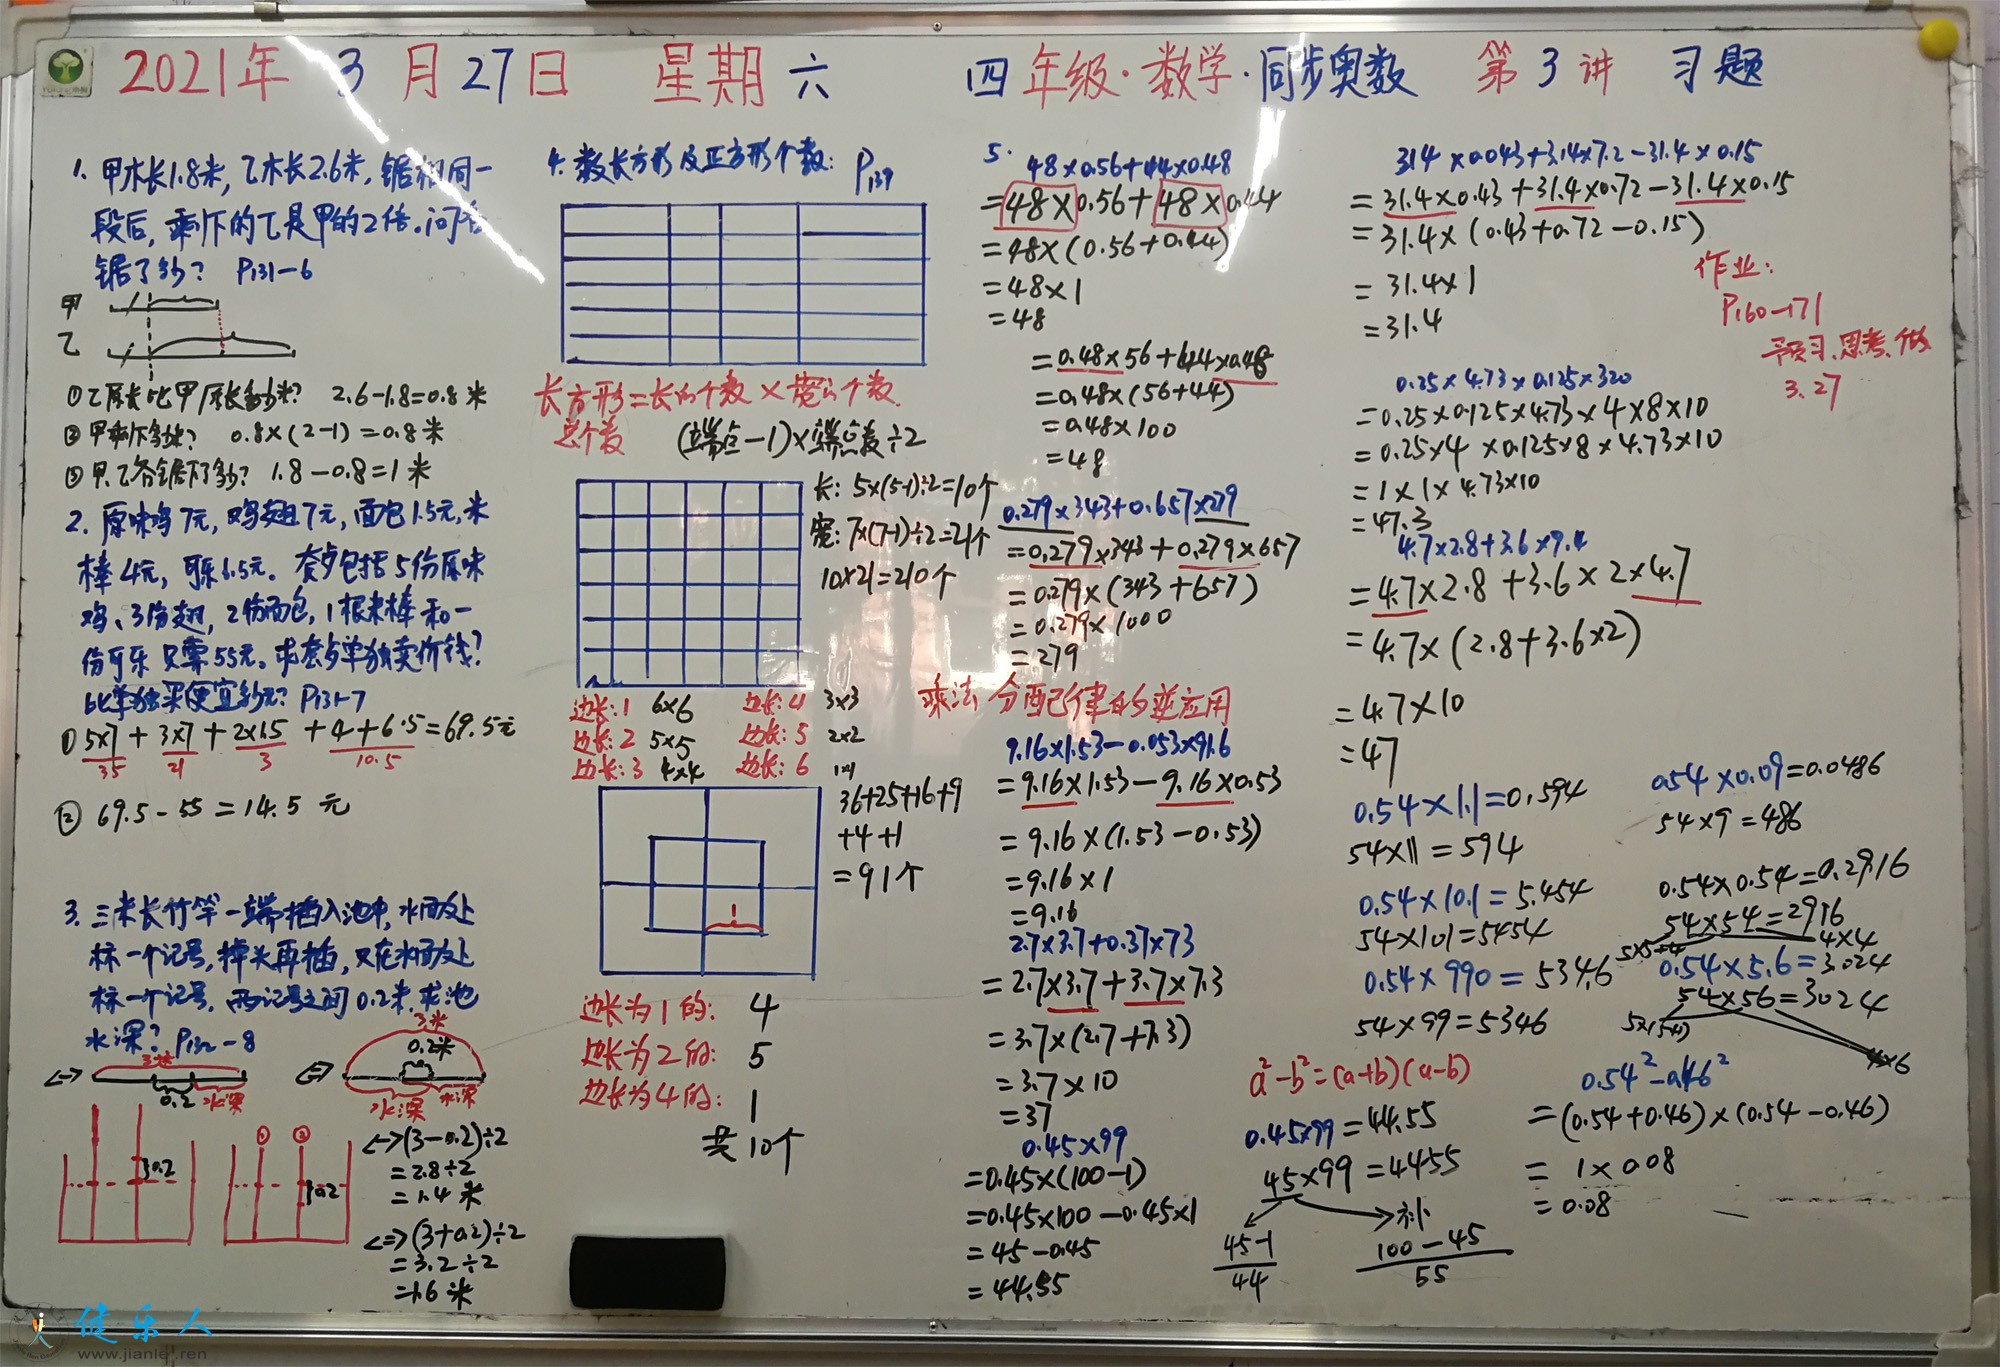 2021年 3月27日 星期六 四年级·数学·同步奥数 第3讲 习题
1. 甲木长1.8米, 乙木长2.6米, 锯相同一
段后, 剩下的乙是甲的2倍。问各
锯了多少? P131-6
甲
乙
①乙原长比甲原长多多少米? 2.6-1.8=0.8米
②甲剩下多少米? 0.8×(2-1)=0.8米
③甲.乙各锯下了多少? 1.8-0.8=1米
2. 原味鸡7元, 鸡翅7元, 面包1.5元, 米
棒4元, 可乐6.5元。套餐包括5份原味
鸡、3份翅, 2份面包, 1根米棒和一
份可乐 只需55元。求套餐单独卖价钱?
比单独买便宜多少元? P131-7
① 5×7 + 3×7 + 2×1.5 + 4+6.5=69.5元
35 21 3 10.5
② 69.5-55=14.5元
3. 三米长竹竿一端插入池中, 水面处
标一个记号, 掉头再插, 又在水面处
标一个记号。两记号之间0.2米。求池
水深? P132-8
3米
0.2 水深
3米
0.2米
水深 水深
0.2
① ②
0.2
<=>(3-0.2)÷2
=2.8÷2
=1.4米
<=>(3+0.2)÷2
=3.2÷2
=1.6米
4. 数长方形及正方形个数: P139
长方形=长的个数×宽的个数
总个数 (端点-1)×端点数÷2
长: 5×(5-1)÷2=10个
宽: 7×(7-1)÷2=21个
10×21=210个
边长:1 6×6 边长:4 3×3
边长:2 5×5 边长:5 2×2
边长:3 4×4 边长:6 1×1
36+25+16+9
+4+1
=91个
1
边长为1的: 4
边长为2的: 5
边长为4的: 1
共10个
5. 48×0.56+44×0.48
=48×0.56+48×0.44
=48×(0.56+0.44)
=48×1
=48
=0.48×56+44×0.48
=0.48×(56+44)
=0.48×100
=48
0.279×343+0.657×279
=0.279×343+0.279×657
=0.279×(343+657)
=0.279×1000
=279
乘法分配律的逆应用
9.16×1.53-0.053×91.6
=9.16×1.53-9.16×0.53
=9.16×(1.53-0.53)
=9.16×1
=9.16
2.7×3.7+0.37×73
=2.7×3.7+3.7×7.3
=3.7×(2.7+7.3)
=3.7×10
=37
0.45×99
=0.45×(100-1)
=0.45×100-0.45×1
=45-0.45
=44.55
314×0.043+3.14×7.2-31.4×0.15
=31.4×0.43+31.4×0.72-31.4×0.15
=31.4×(0.43+0.72-0.15)
=31.4×1
=31.4
作业:
P160-171
预习、思考、做
3.27
0.25×4.73×0.125×320
=0.25×0.125×4.73×4×8×10
=0.25×4×0.125×8×4.73×10
=1×1×4.73×10
=47.3
4.7×2.8+3.6×9.4
=4.7×2.8+3.6×2×4.7
=4.7×(2.8+3.6×2)
=4.7×10
=47
0.54×1.1=0.594
54×11=594
0.54×10.1=5.454
54×101=5454
0.54×990=534.6
54×99=5346
0.54×0.09=0.0486
54×9=486
0.54×0.54=0.2916
54×54=2916
5×5+4 4×4
0.54×5.6=3.024
54×56=3024
5×(5+1) 4×6
a²-b²=(a+b)(a-b)
0.45×99=44.55
45×99=4455
补
45-1
44
100-45
55
0.54²-0.46²
=(0.54+0.46)×(0.54-0.46)
=1×0.08
=0.08
健乐人
www.jianle.ren